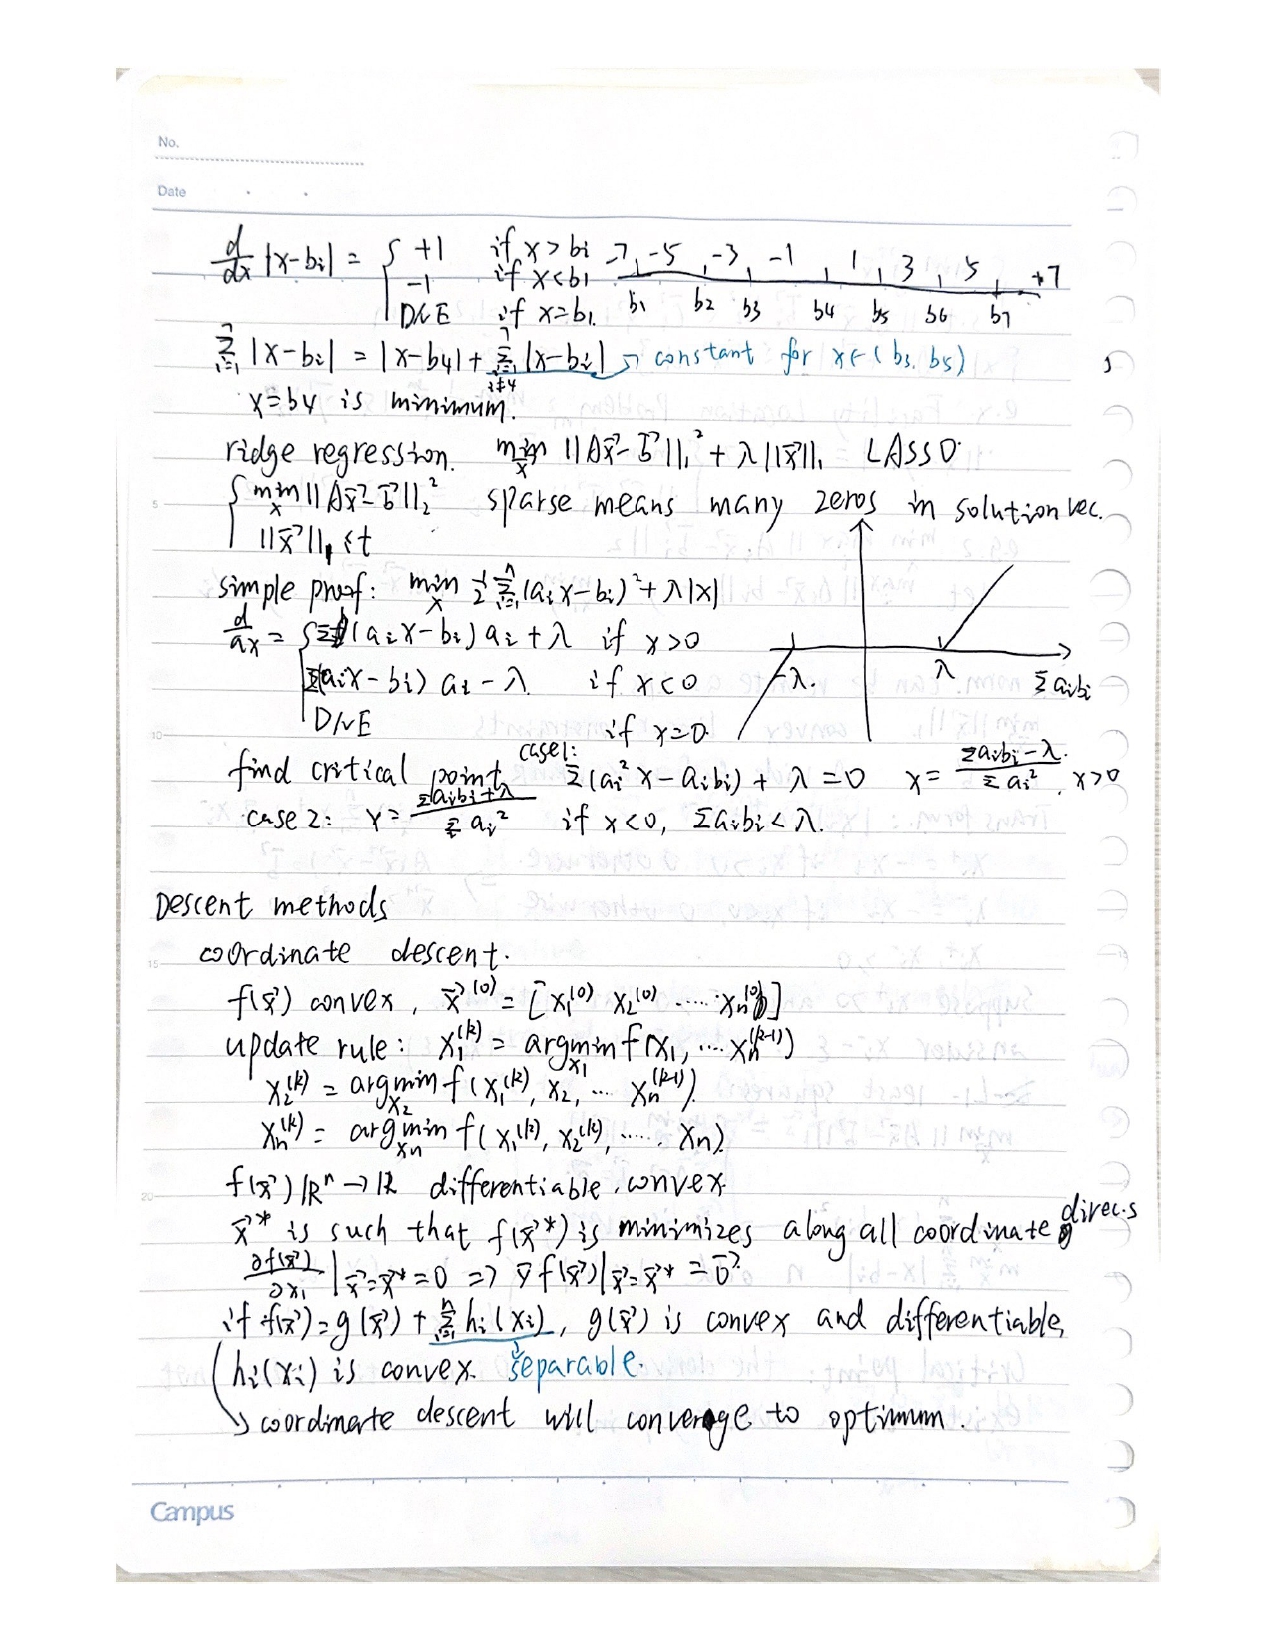 No.
Date
d/dx |x-bi| = { +1 if x>bi -7 -5 -3 -1 1 3 5 +7
-1 if x<bi b1 b2 b3 b4 b5 b6 b7
DNE if x=bi
Σ_{i=1}^{7} |x-bi| = |x-b4| + Σ_{i=1, i≠4}^{7} |x-bi| → constant for x∈(b3, b5)
x=b4 is minimum.
ridge regression. min_x ||Ax⃗-b⃗||₁² + λ||x⃗||₁ LASSO
{ min_x ||Ax⃗-b⃗||₂² sparse means many zeros in solution vec.
||x⃗||₁ ≤t
simple proof: min_x ½ Σ_{i=1}^{n} (ai x-bi)² + λ|x|
d/dx = { Σ(ai x-bi) ai + λ if x>0
Σ(ai x-bi) ai - λ if x<0
DNE if x=0
-λ. λ Σ aibi
find critical point case1: Σ(ai² x - aibi) + λ = 0 x = (Σaibi-λ)/(Σai²), x>0
case 2: x = (Σaibi+λ)/(Σai²) if x<0, Σaibi<λ.
Descent methods
coordinate descent.
f(x⃗) convex, x⃗^(0) = [x1^(0) x2^(0) ..... xn^(0)]
update rule: x1^(k) = argmin_{x1} f(x1, ... xn^(k-1))
x2^(k) = argmin_{x2} f(x1^(k), x2, ... xn^(k-1)).
xn^(k) = argmin_{xn} f(x1^(k), x2^(k), ..... xn).
f(x⃗) ℝⁿ→ℝ differentiable, convex.
x⃗* is such that f(x⃗*) is minimizes along all coordinate direc.s
∂f(x⃗)/∂x1 |x⃗=x⃗* = 0 => ∇f(x⃗)|x⃗=x⃗* = 0⃗.
if f(x⃗)=g(x⃗) + Σ_{i=1}^{n} hi(xi), g(x⃗) is convex and differentiable,
hi(xi) is convex. separable.
↘ coordinate descent will converge to optimum.
Campus